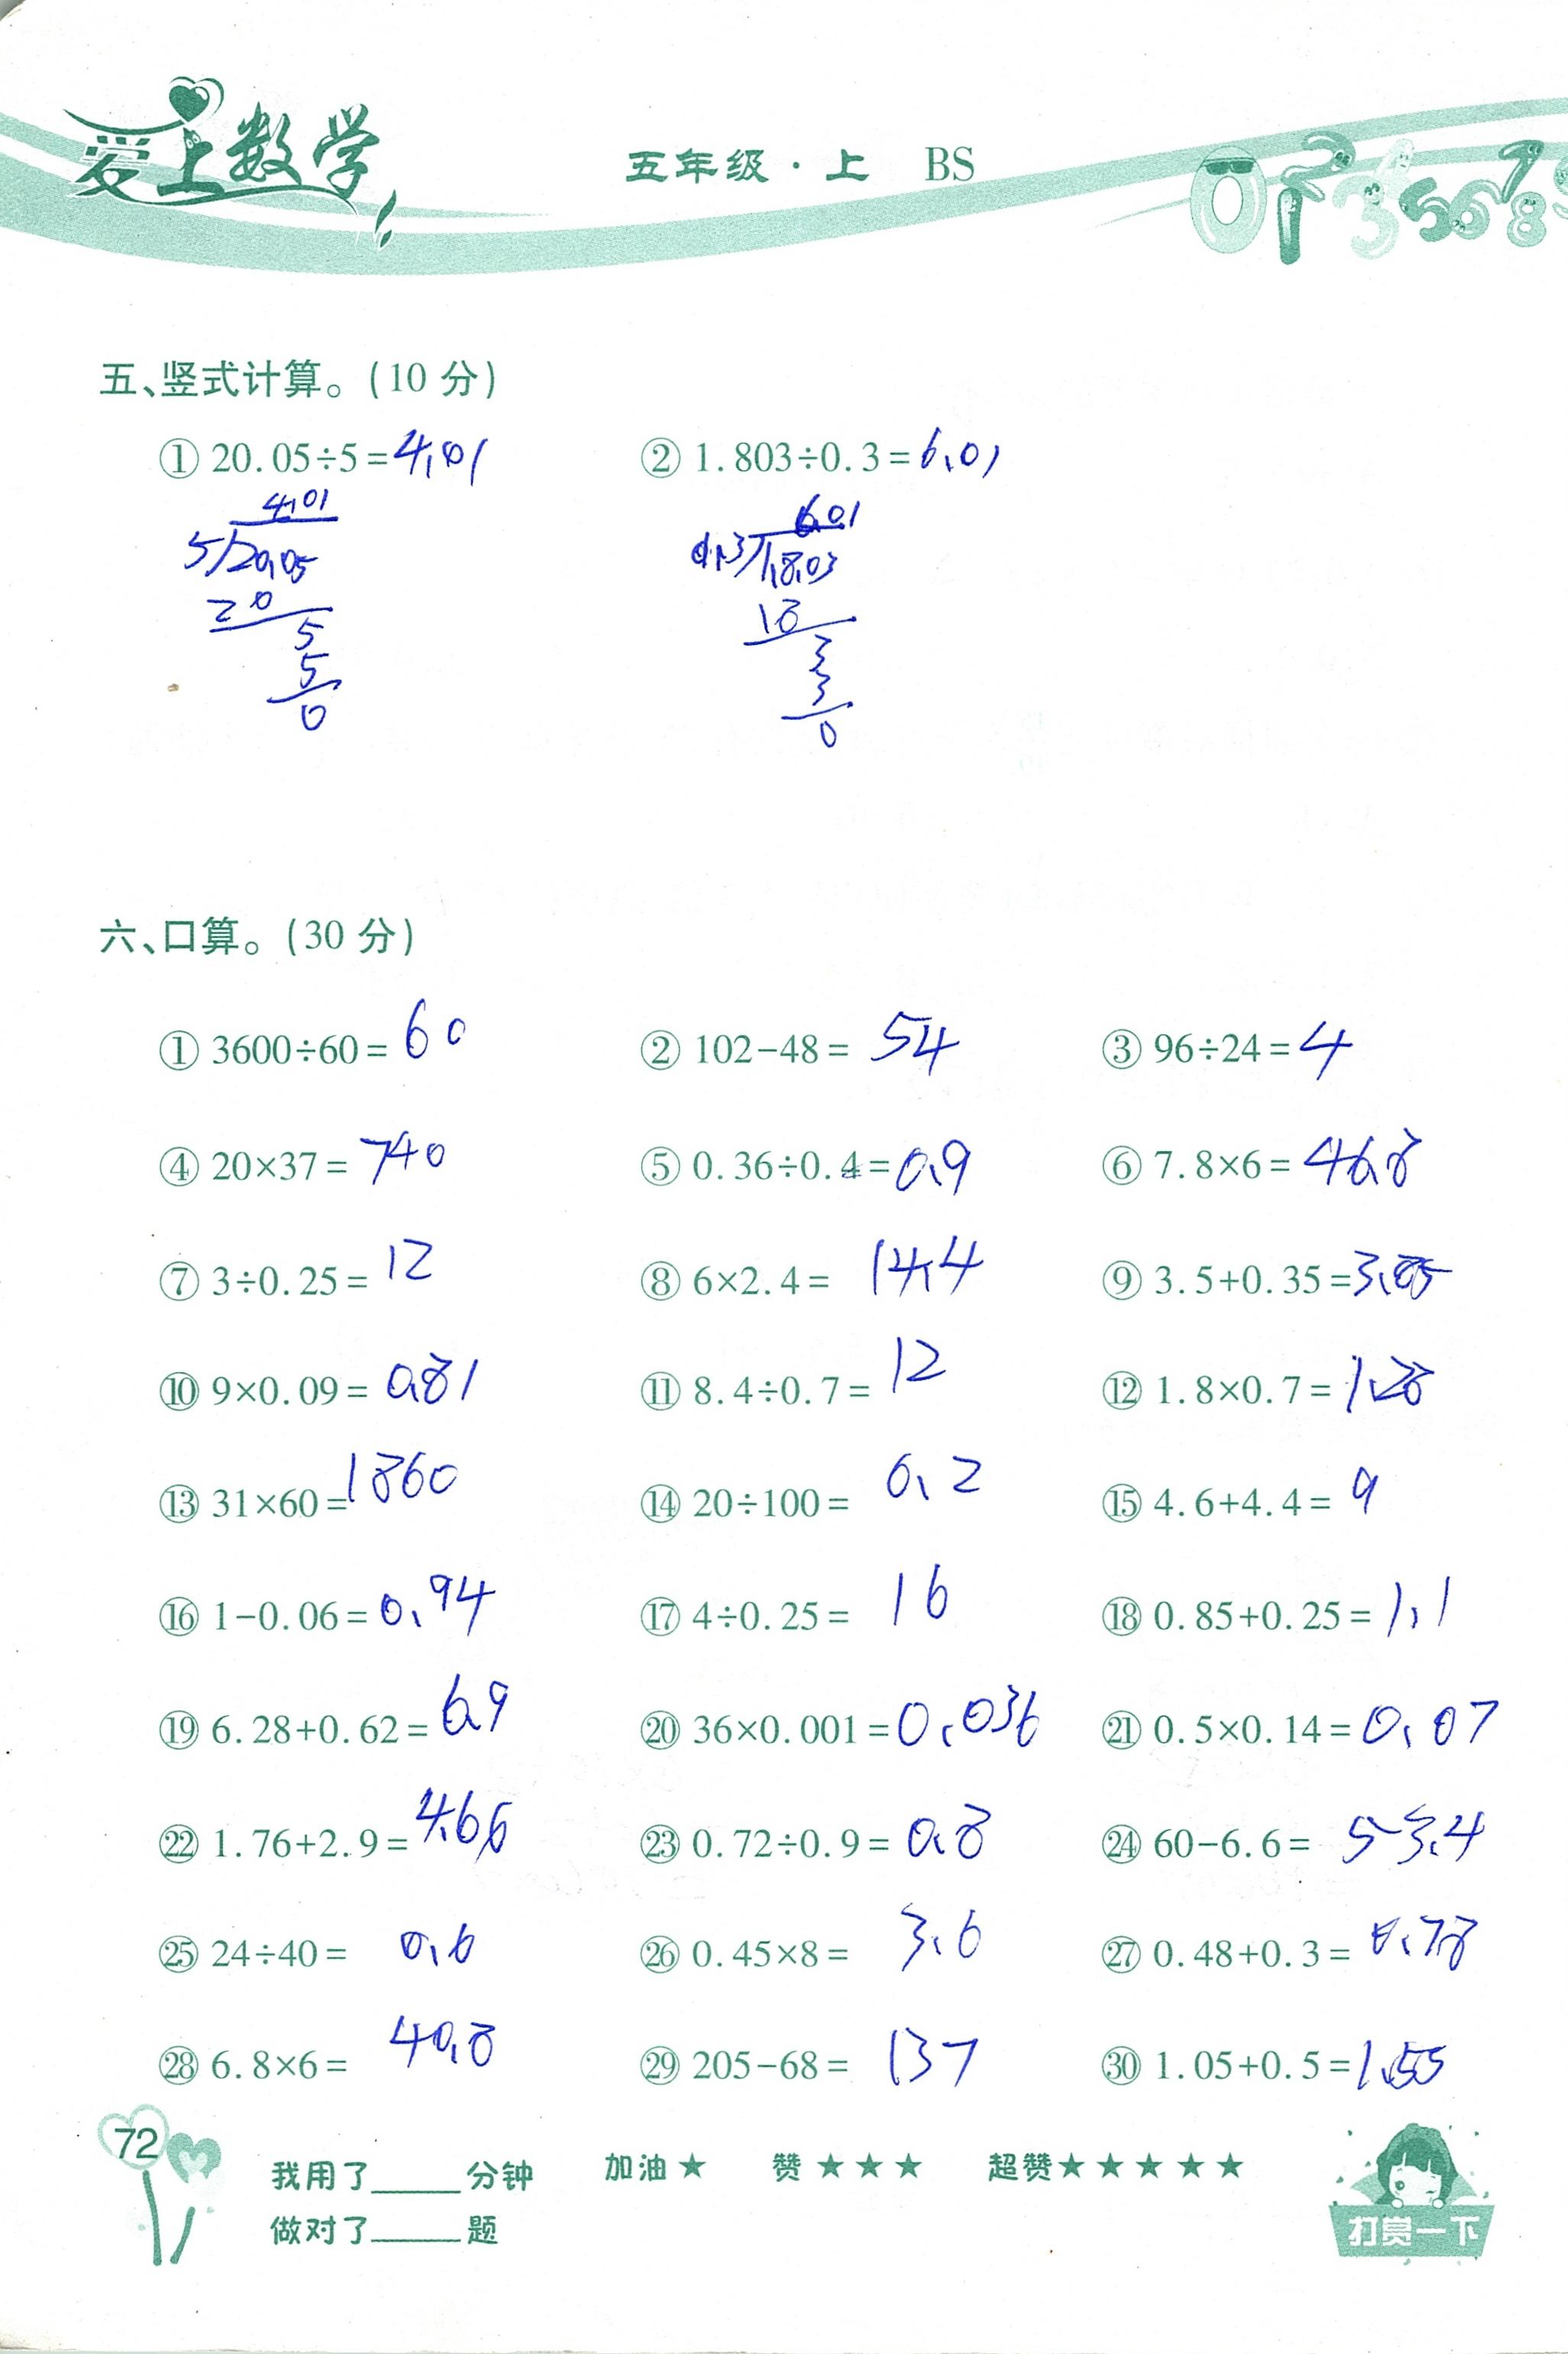 爱上数学
五年级·上 BS
五、竖式计算。(10 分)
① 20.05÷5=4.01 ② 1.803÷0.3=6.01
4.01 6.01
5 20.05 0.3 1.8.03
20 18
5 3
5 3
0 0
六、口算。(30 分)
① 3600÷60= 60 ② 102-48= 54 ③ 96÷24= 4
④ 20×37= 740 ⑤ 0.36÷0.4= 0.9 ⑥ 7.8×6= 46.8
⑦ 3÷0.25= 12 ⑧ 6×2.4= 14.4 ⑨ 3.5+0.35=3.85
⑩ 9×0.09= 0.81 ⑪ 8.4÷0.7= 12 ⑫ 1.8×0.7= 1.28
⑬ 31×60=1860 ⑭ 20÷100= 0.2 ⑮ 4.6+4.4= 9
⑯ 1-0.06= 0.94 ⑰ 4÷0.25= 16 ⑱ 0.85+0.25= 1.1
⑲ 6.28+0.62= 6.9 ⑳ 36×0.001=0.036 ㉑ 0.5×0.14=0.07
㉒ 1.76+2.9=4.66 ㉓ 0.72÷0.9= 0.8 ㉔ 60-6.6= 53.4
㉕ 24÷40= 0.6 ㉖ 0.45×8= 3.6 ㉗ 0.48+0.3= 0.78
㉘ 6.8×6= 40.8 ㉙ 205-68= 137 ㉚ 1.05+0.5=1.55
72
我用了_____分钟 加油★ 赞★★★ 超赞★★★★★
做对了_____题
打赏一下